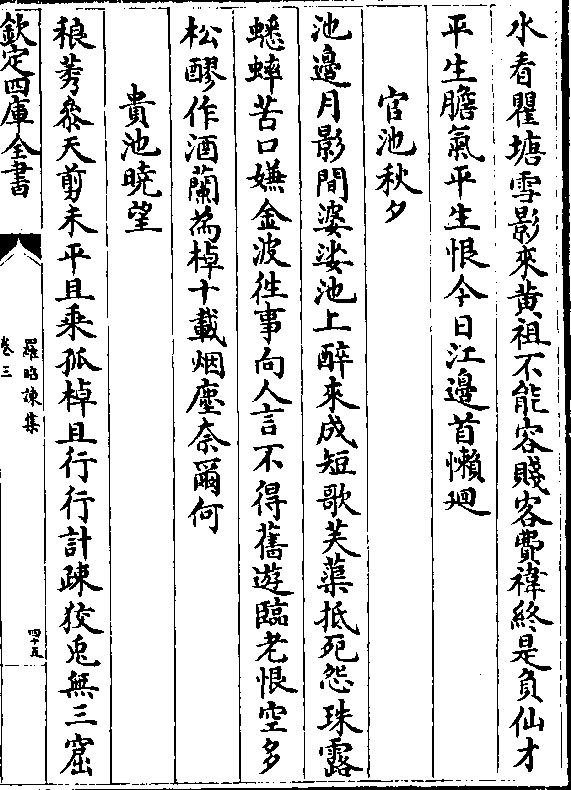 水看瞿塘雪影來黄祖不能容賤客費禕終是負仙才
平生膽氣平生恨今日江邊首懶廻
官池秋夕
池邊月影閒婆娑池上醉來成短歌芙蕖抵死怨珠露
蟋蟀苦口嫌金波徃事向人言不得舊遊臨老恨空多
松醪作酒蘭為棹十載烟塵奈爾何
貴池曉望
稂莠參天剪未平且乘孤棹且行行計疎狡兎無三窟
欽定四庫全書
羅昭諫集
卷三
四十五